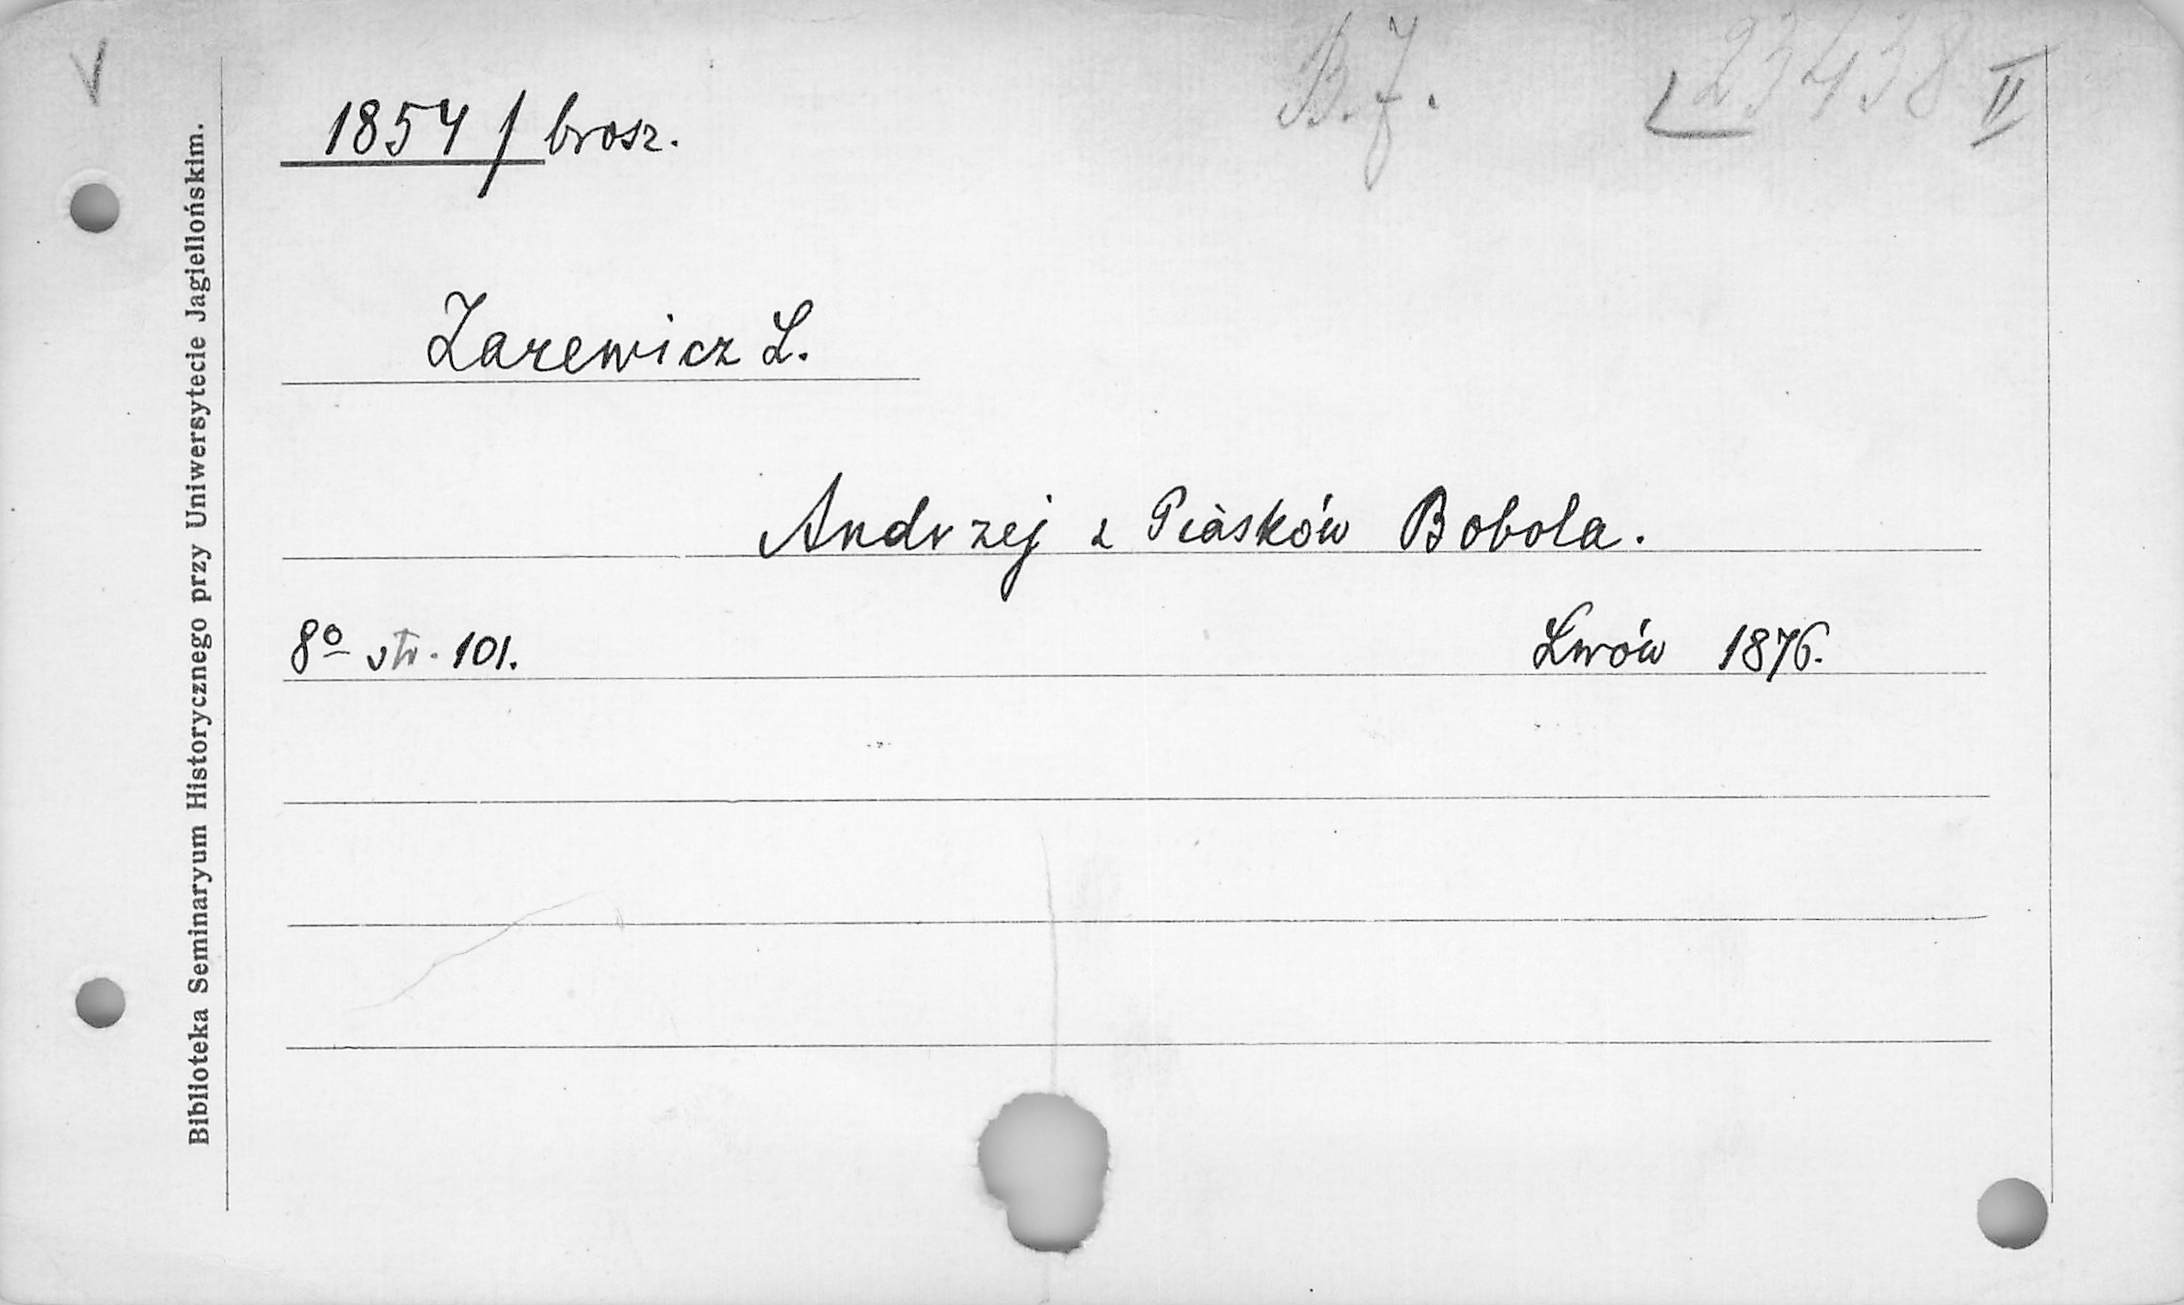 V
B.J. 23438 II
1854/brosz.
Zarewicz L.
Andrzej z Piasków Bobola.
8º str. 101. Lwów 1876.
Biblioteka Seminaryum Historycznego przy Uniwersytecie Jagiellońskim.